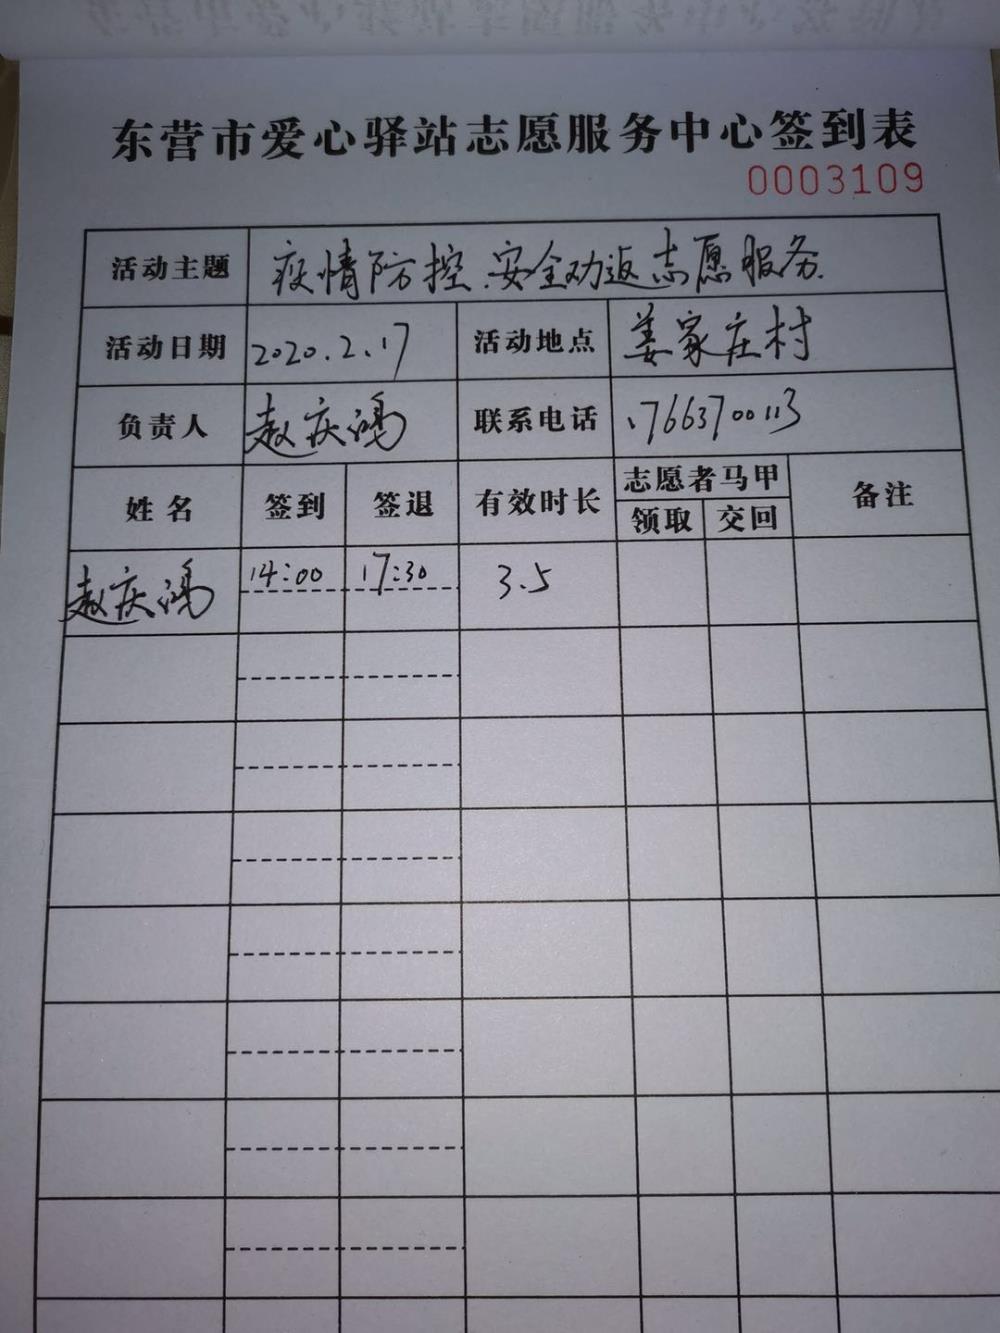 东营市爱心驿站志愿服务中心签到表
0003109
活动主题 疫情防控.安全劝返志愿服务.
活动日期 2020.2.17 活动地点 姜家庄村
负责人 赵庆鸿 联系电话 17663700113
姓名 签到 签退 有效时长 志愿者马甲 备注
领取 交回
赵庆鸿 14:00 17:30 3.5